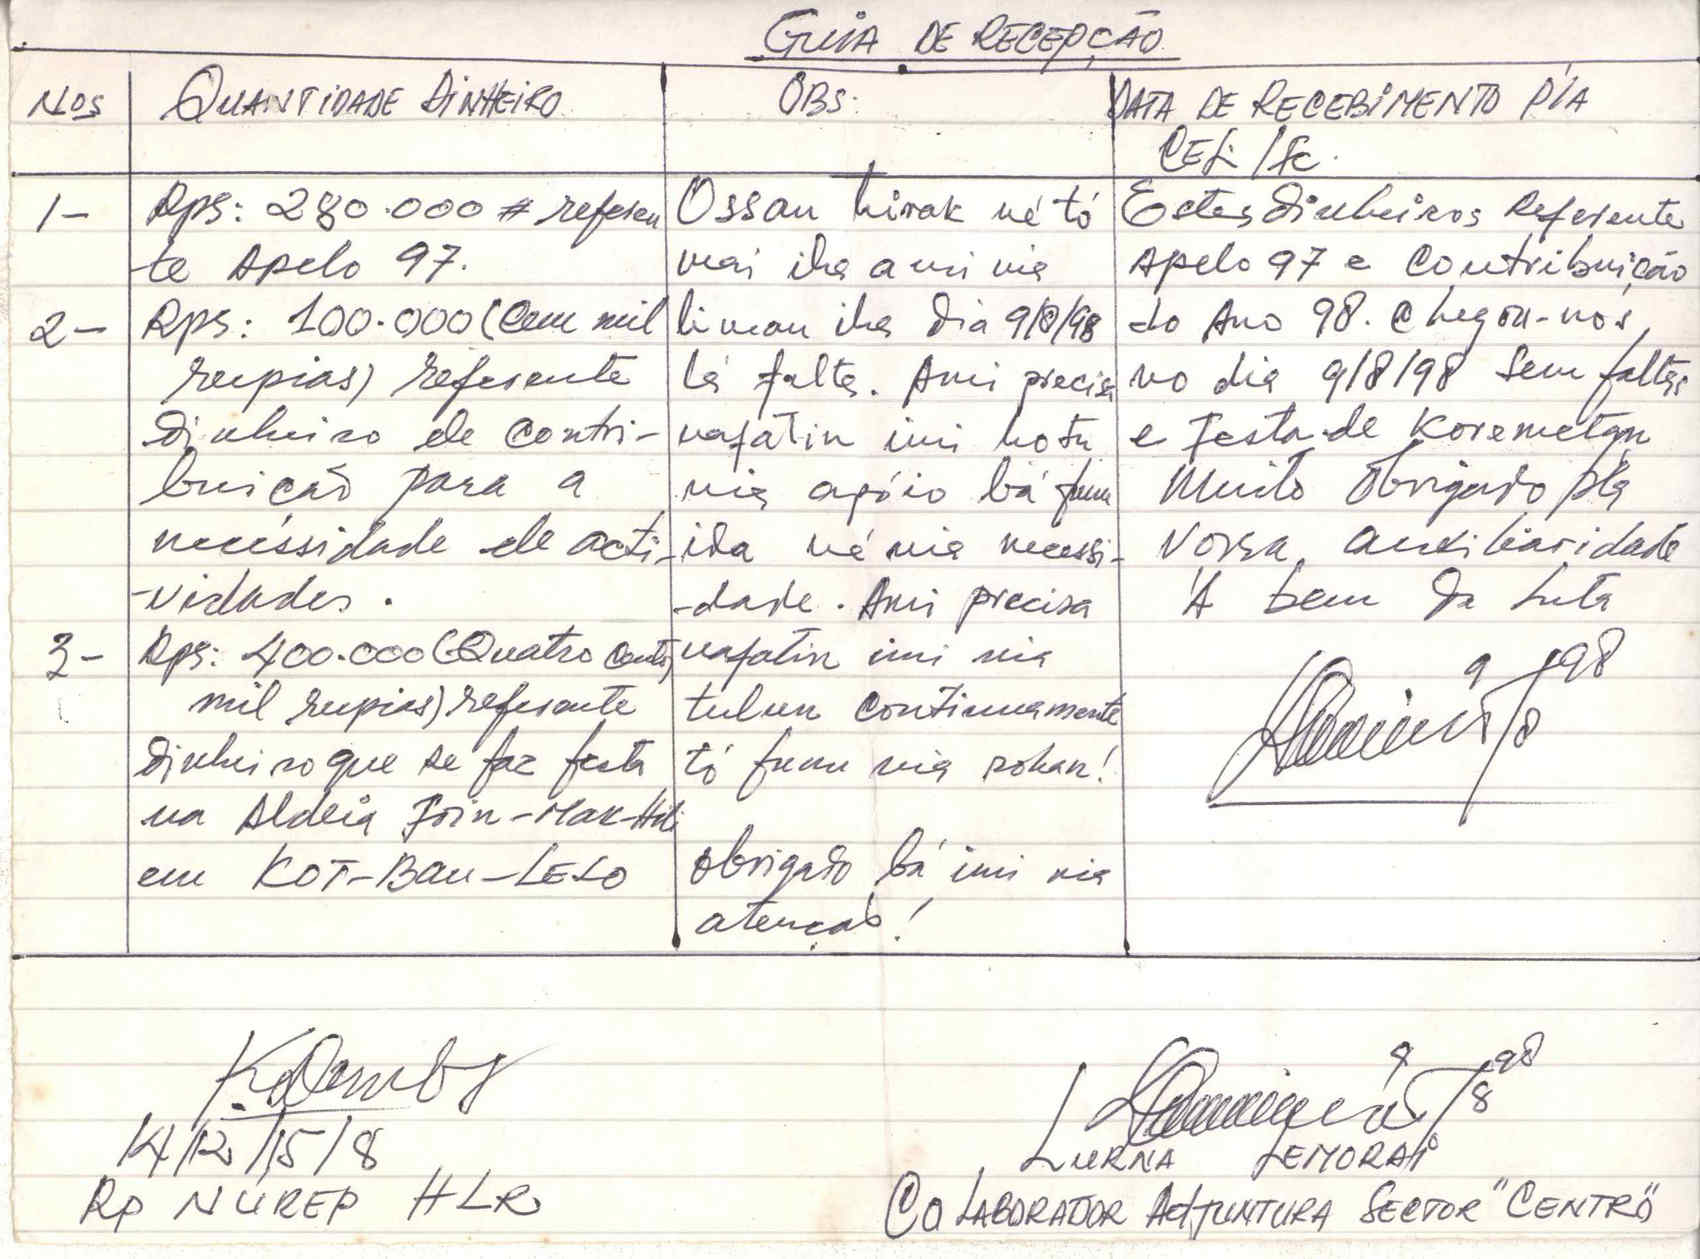 GUIA DE RECEPÇÃO
Nos
QUANTIDADE DINHEIRO
OBS:
DATA DE RECEBIMENTO P/A
CEL/FC.
1-
Rps: 280.000 # referen
te Apelo 97.
2-
Rps: 100.000 (Cem mil
rupias) referente
dinheiro de contri-
buição para a
necessidade de acti-
-vidades.
3-
Rps: 400.000 (Quatro centos
mil rupias) referente
dinheiro que se faz festa
na Aldeia Foin-Mak-Hili
em KOT-BAU-LELO
Ossan hirak né tó
mai iha ami nia
liman iha dia 9/8/98
lá falta. Ami precisa
nafatin imi hotu
nia apóio bá funu
ida né nia necessi-
-dade. Ami precisa
nafatin imi nia
tulun continuamente
tó funu nia rohan!
obrigado bá imi nia
atenção!
Estes dinheiros Referente
Apelo 97 e contribuição
do Ano 98. Chegou-nos,
no dia 9/8/98 sem faltas
e Festa de Koremetan
Muito obrigado pla
Vossa auxiliaridade
A bem da Luta
9/8/98
K4/12/15/8
Rp NUREP HLR
9/8/98
LURNA LEMORAI
COLABORADOR ADJUNTURA SECTOR "CENTRO"